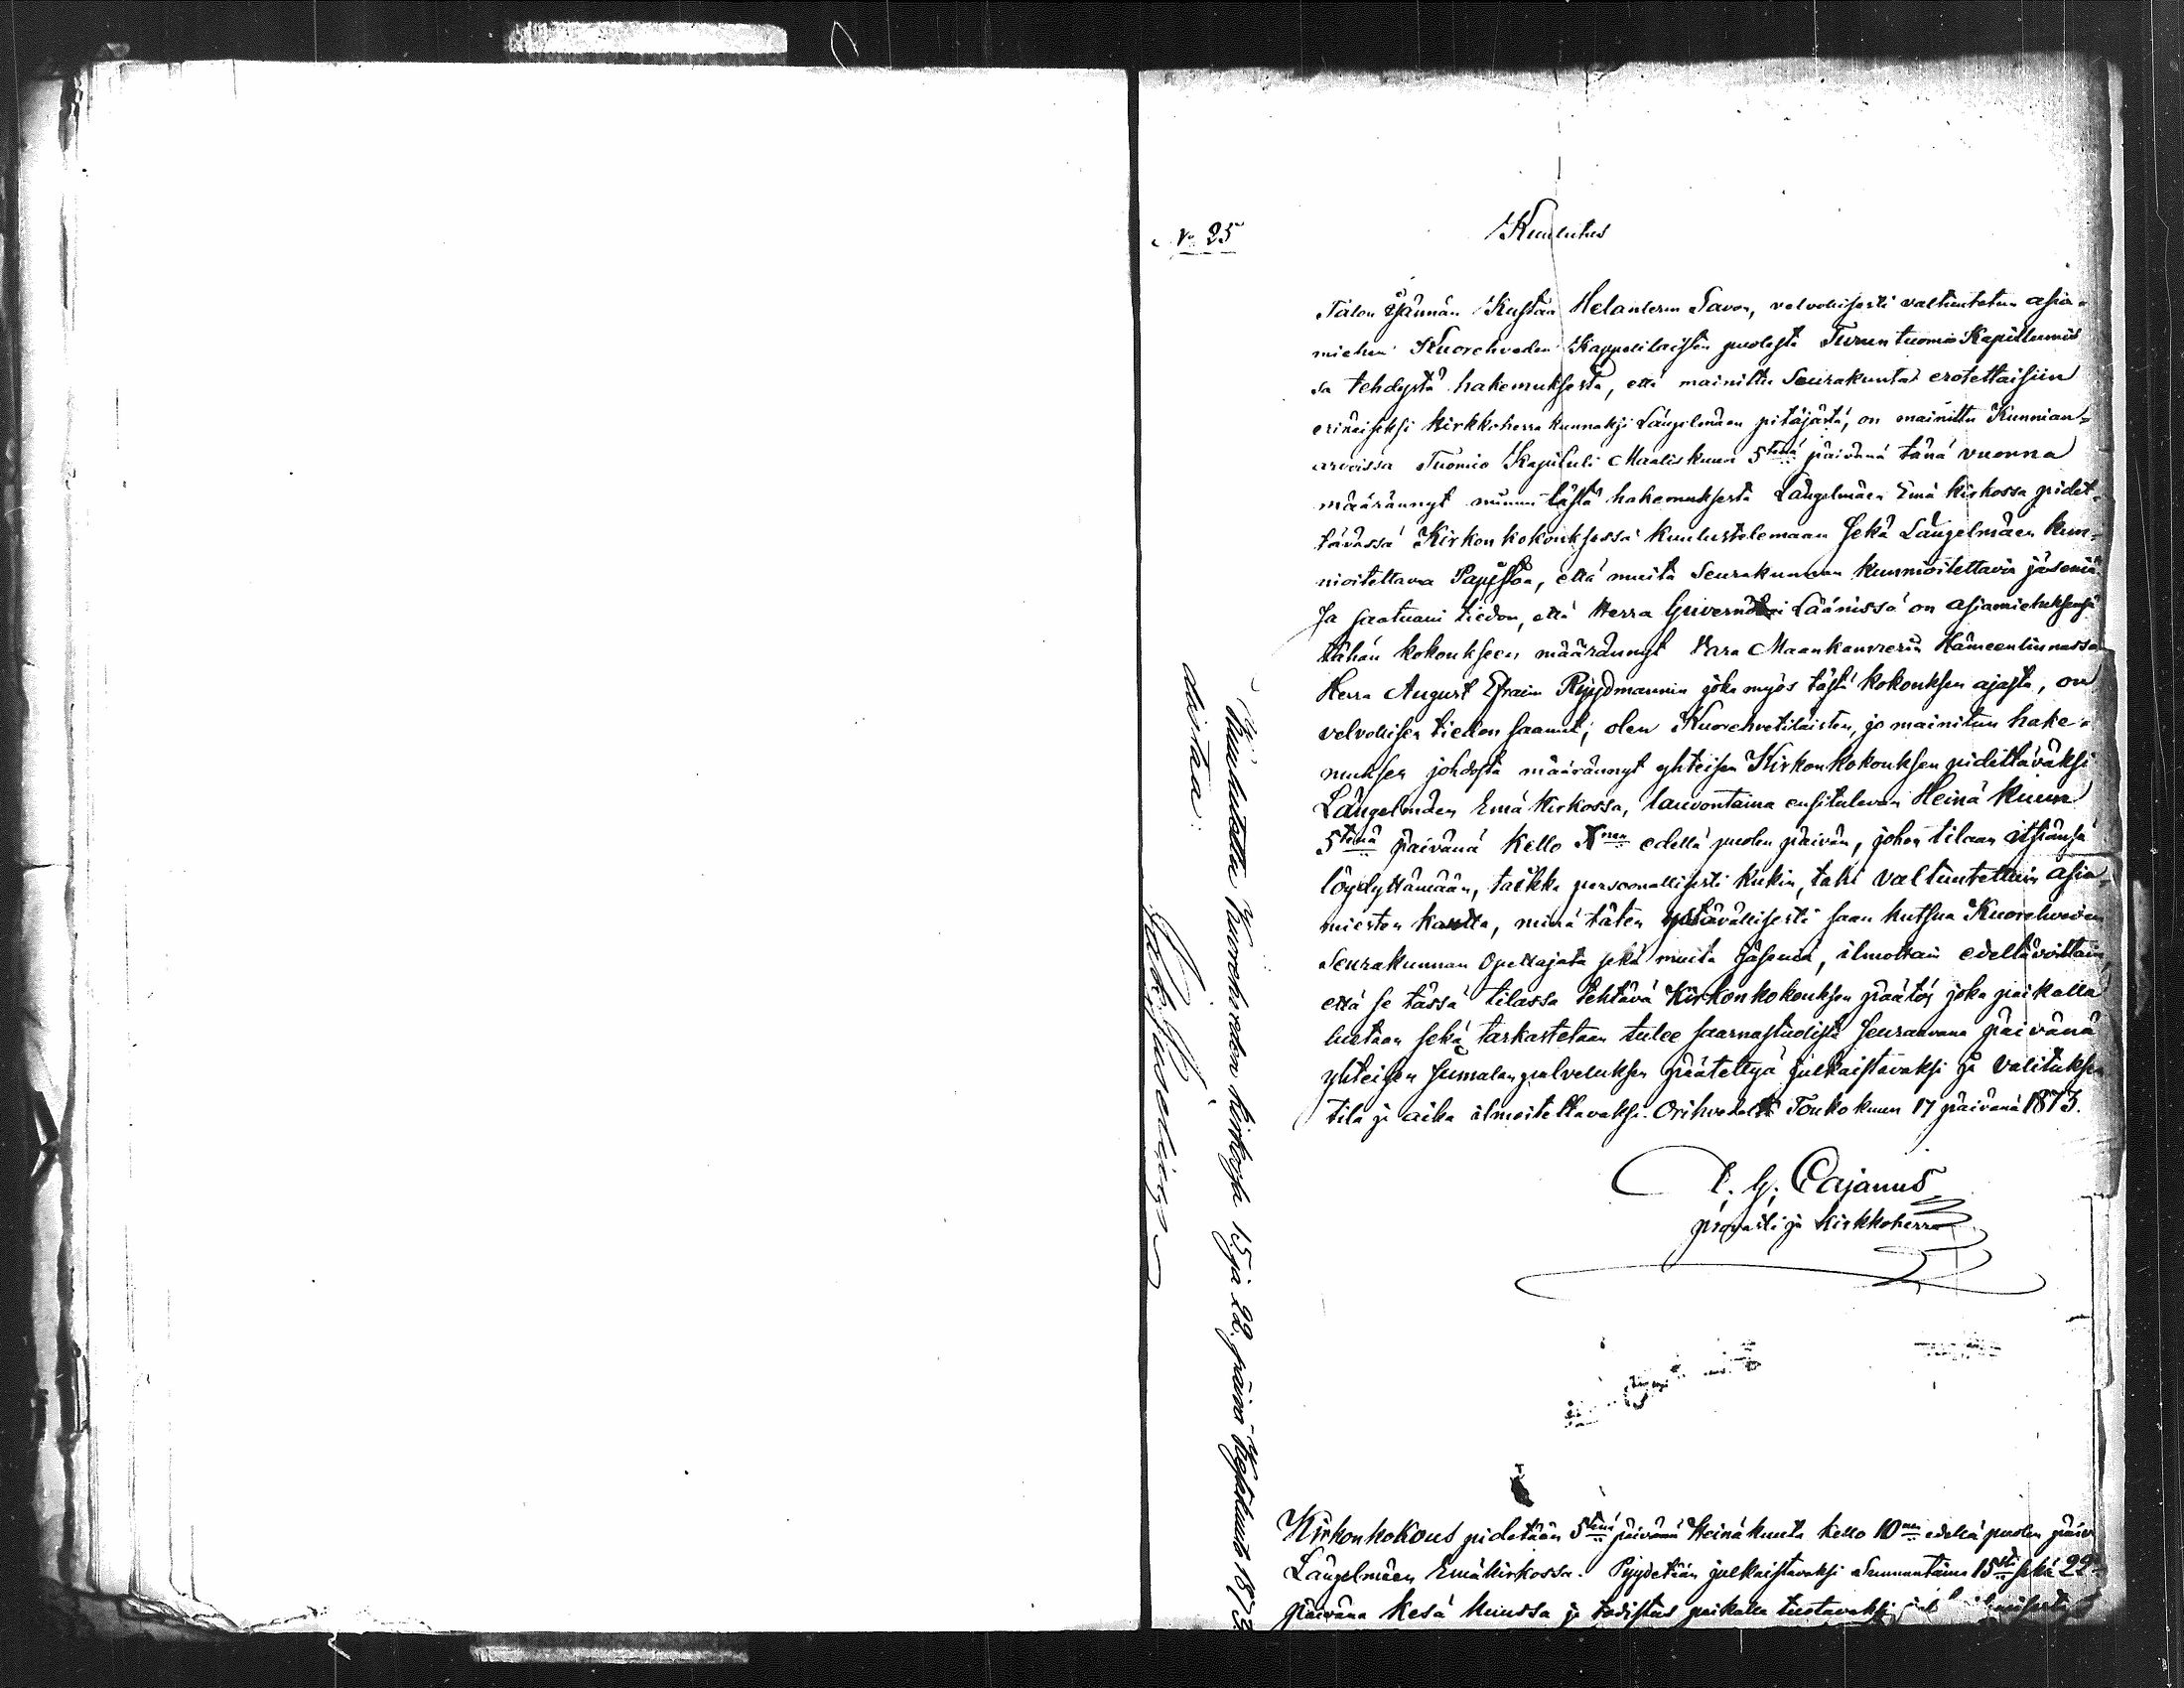 No 25
Kuulutus
Talon Isännän Kustaa Helanderin Savon, velvollisesti valtuutetun asia-
miehen Kuorehveden Kappelilaisten puolesta Turun tuomio Kapitlumis
sa tehdystä hakemuksesta, että mainittu Seurakunta erotettaisiin
erinäiseksi kirkkoherra kunnaksi Längelmäen pitäjästä, on mainittu Kunnian-
arvoissa Tuomio Kapituli Maaliskuun 5tenä päivänä tänä vuonna
määrännyt minun tästä hakemuksesta Längelmäen Emä kirkossa pidet-
tävässä Kirkon kokouksessa kuulustelemaan sekä Längelmäen kun-
nioitettavaa Papistoa, että muita Seurakunnan kunnioitettavia jäseniä.
Ja saatuani tiedon, että Herra Guvernööri Läänissä on asiamieheksensä
tähän kokoukseen määrännyt Vara Maankamreerin Hämeenlinnassa
Herra August Efraim Ryydmannin joka myös tästä kokouksen ajasta, on
velvollisen tiedon saanut; olen Kuorehvetiläisten, jo mainitun hake-
muksen johdosta määrännyt yhteisen Kirkon kokouksen pidettäväksi
Längelmäen Emä kirkossa, lauvontaina ensitulevan Heinä kuun
5tenä päivänä kello Xnen edellä puolen päivän, johon tilaan itsiänsä
löydyttämään, taikka persoonallisesti kukin, tahi valtuutettuin asia-
miesten kautta, minä täten ystävällisesti saan kutsua Kuorehveden
Seurakunnan Opettajata sekä muita Jäseniä, ilmottain edeltävöittäin,
että se tässä tilassa tehtävä Kirkonkokouksen päätös joka paikalla
luetaan sekä tarkastetaan tulee saarnastuolista seuraavana päivänä
yhteisen Jumalanpalveluksen päätettyä julkaistavaksi ja valituksen
tila ja aika ilmoitettavaksi. Orihvedeltä Toukokuun 17 päivänä 1873.
C. G. Cajanus
provasti ja Kirkkoherra
Kirkonkokous pidetään 5tenä päivänä Heinäkuuta kello 10nen edellä puolen päiv
Längelmäen Emäkirkossa. Pyydetään julkaistavaksi Sunnuntaina 15sta sekä 22
päivänä Kesä kuussa ja todistus paikalla tuotavaksi
Kuulutettu Kuorehveden kirkossa 15 ja 22 päivä Kesäkuuta 1873
todistaa: